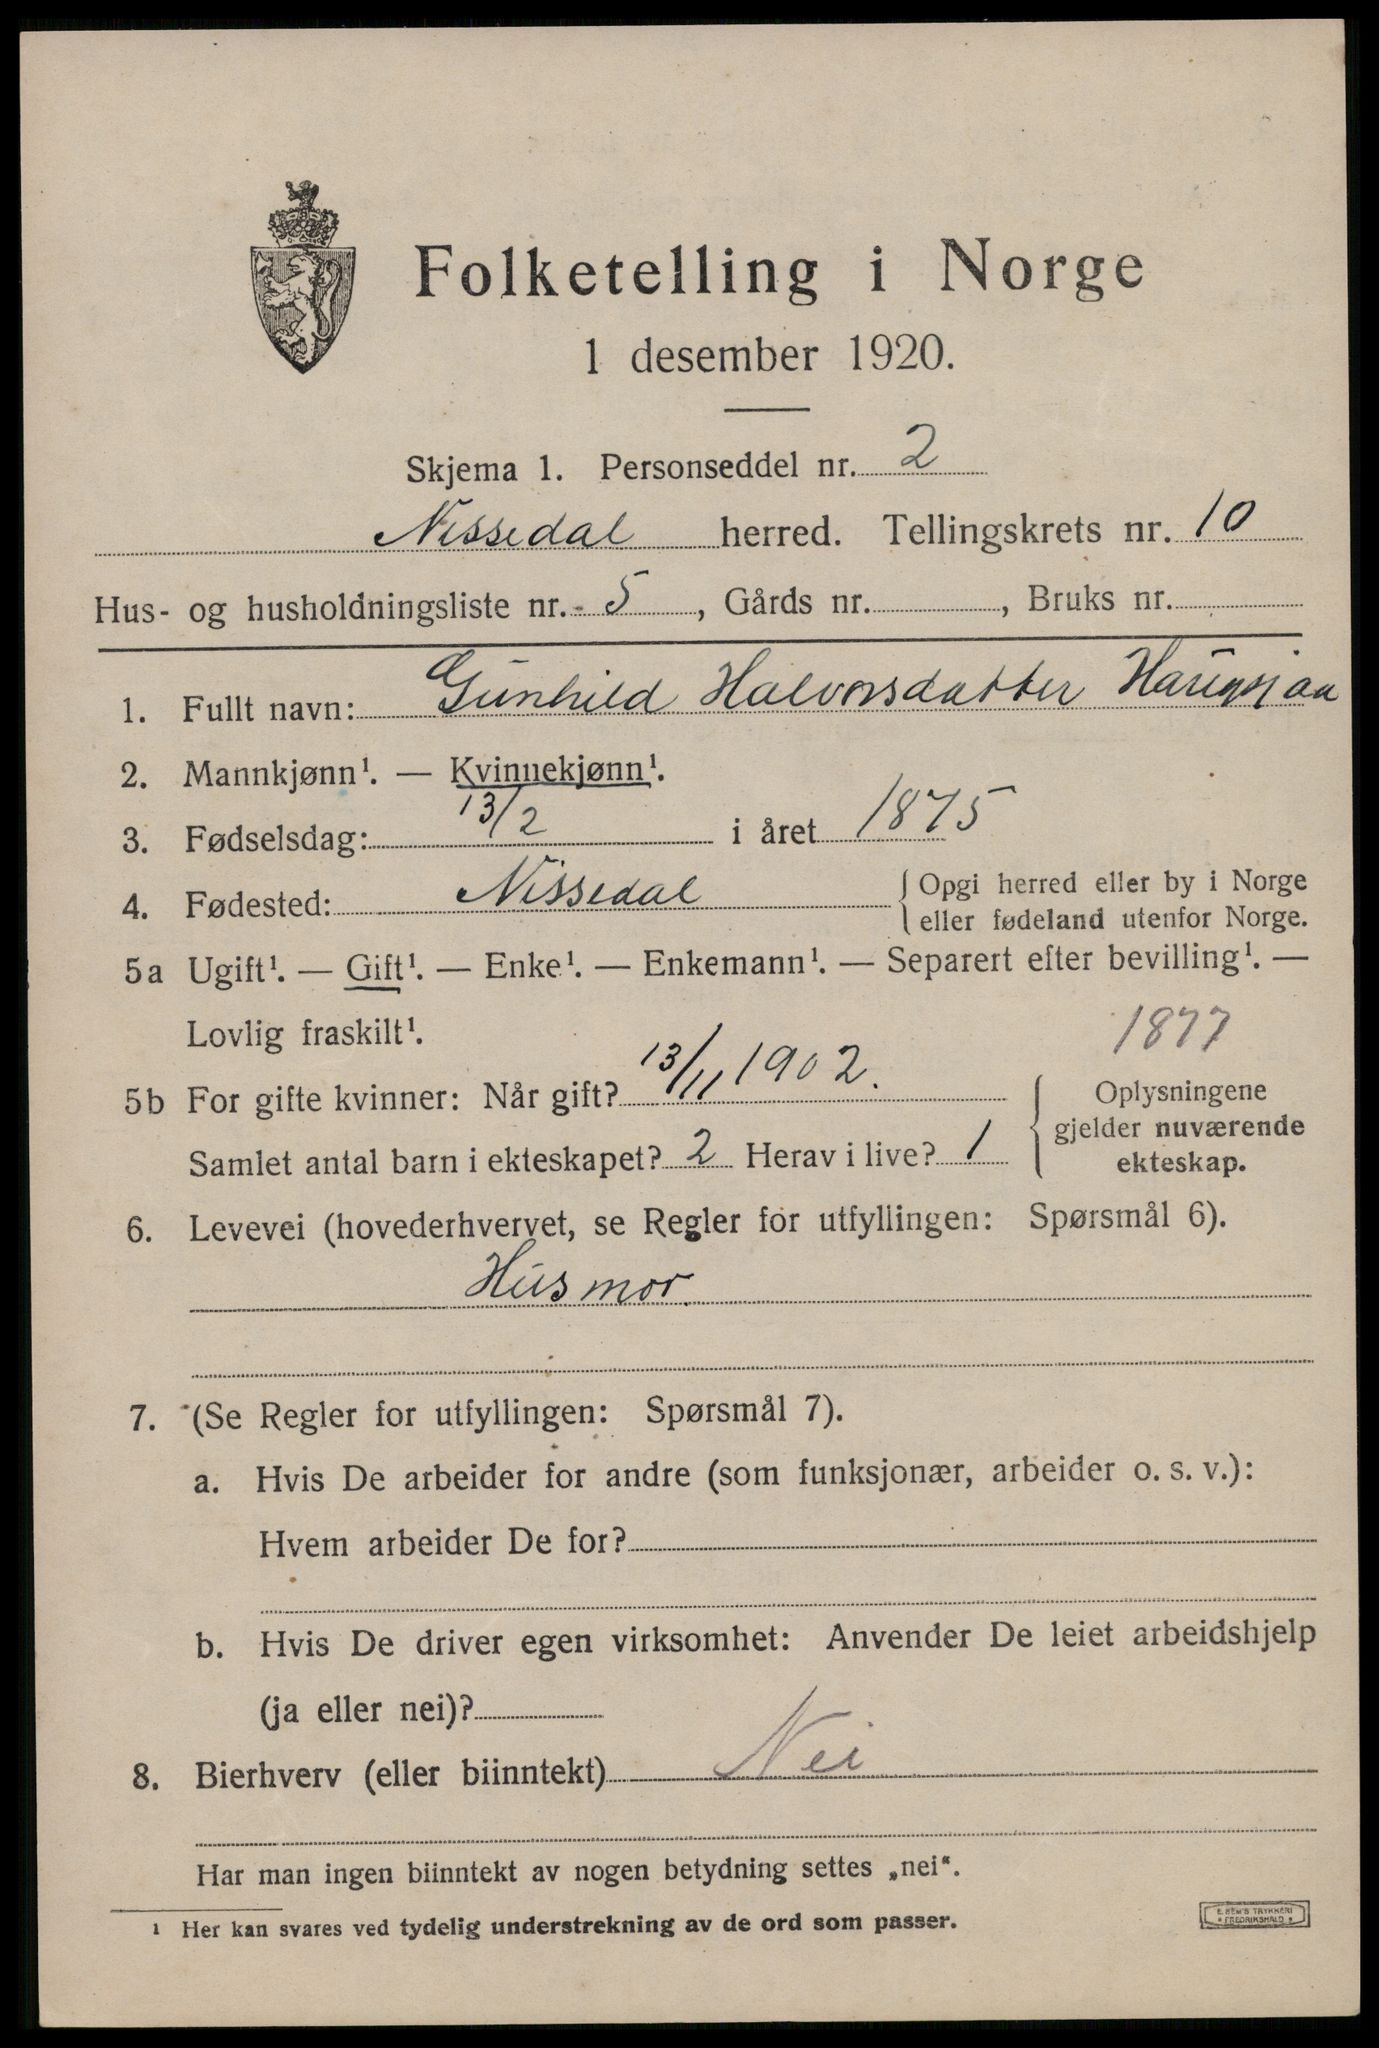 Folketelling i Norge
1 desember 1920.
Skjema 1. Personseddel nr. 2
Nissedal herred. Tellingskrets nr. 10
Hus- og husholdningsliste nr. 5, Gårds nr. , Bruks nr.
1. Fullt navn: Gunhild Halvorsdatter Haugsjaa
2. Mannkjønn¹. — Kvinnekjønn¹.
3. Fødselsdag: 13/2 i året 1875
4. Fødested: Nissedal { Opgi herred eller by i Norge
eller fødeland utenfor Norge.
5a Ugift¹. — Gift¹. — Enke¹. — Enkemann¹. — Separert efter bevilling¹. —
Lovlig fraskilt¹. 1877
5b For gifte kvinner: Når gift? 13/11 1902. { Oplysningene
gjelder nuværende
Samlet antal barn i ekteskapet? 2 Herav i live? 1 ekteskap.
6. Levevei (hovederhvervet, se Regler for utfyllingen: Spørsmål 6).
Husmor.
7. (Se Regler for utfyllingen: Spørsmål 7).
a. Hvis De arbeider for andre (som funksjonær, arbeider o. s. v.):
Hvem arbeider De for?
b. Hvis De driver egen virksomhet: Anvender De leiet arbeidshjelp
(ja eller nei)?
8. Bierhverv (eller biinntekt) Nei
Har man ingen biinntekt av nogen betydning settes „nei“.
¹ Her kan svares ved tydelig understrekning av de ord som passer.
E. SEM'S TRYKKERI
FREDRIKSHALD